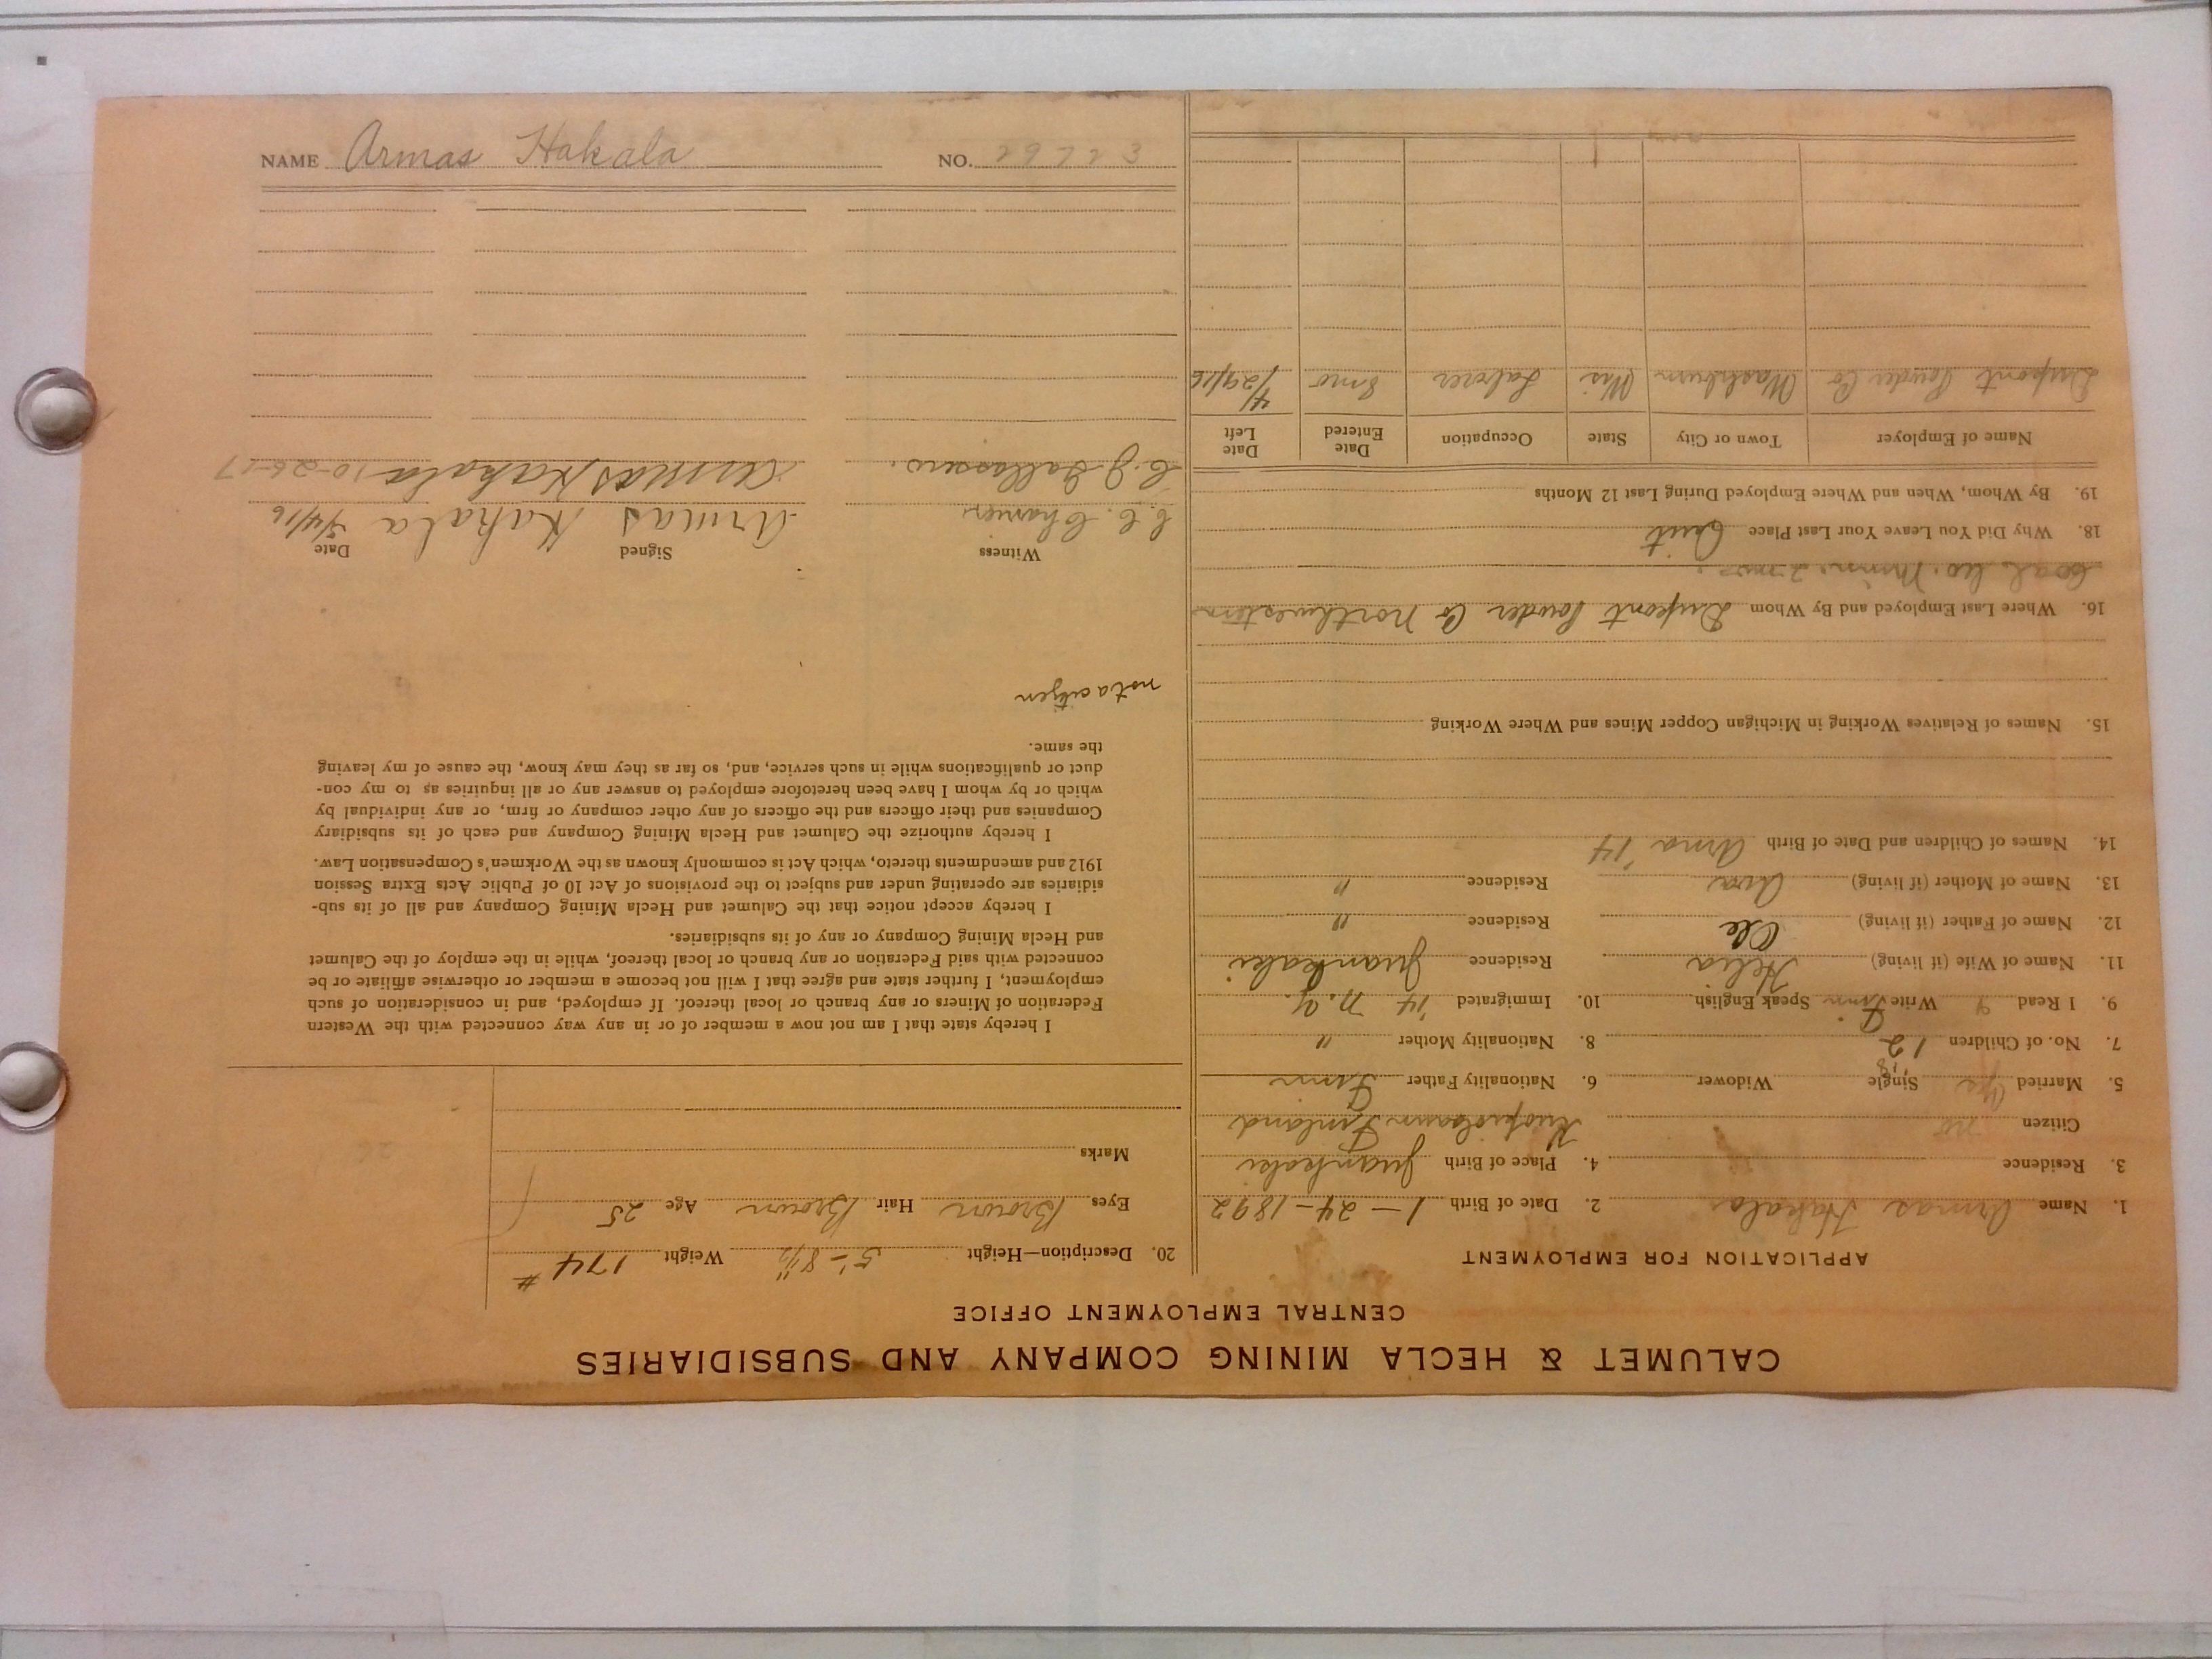 NAME Armas Hakala NO. 29723
CALUMET & HECLA MINING COMPANY AND SUBSIDIARIES
CENTRAL EMPLOYMENT OFFICE
APPLICATION FOR EMPLOYMENT
1. Name Armas Hakala 2. Date of Birth 1-24-1892
3. Residence 4. Place of Birth Juankaki
Citizen no Finland
5. Married Yes Single Widower 6. Nationality Father Finn
7. No. of Children 1 2 8. Nationality Mother "
9. I Read Write Finn Speak English 10. Immigrated '14 N.Y.
11. Name of Wife (if living) Helia Residence Juankaki
12. Name of Father (if living) Ole Residence "
13. Name of Mother (if living) Ava Residence "
14. Names of Children and Date of Birth Arna '14
15. Names of Relatives Working in Michigan Copper Mines and Where Working
16. Where Last Employed and By Whom Dupont Powder Co Northwestern
Coal Co. Minn. 2 mos.
18. Why Did You Leave Your Last Place Quit
19. By Whom, When and Where Employed During Last 12 Months
Name of Employer Town or City State Occupation Date Entered Date Left
Dupont Powder Co Washburn Wis Laborer 8mo 4/29/16
20. Description—Height 5'-8½" Weight 174 #
Eyes Brown Hair Brown Age 25
Marks
I hereby state that I am not now a member of or in any way connected with the Western
Federation of Miners or any branch or local thereof. If employed, and in consideration of such
employment, I further state and agree that I will not become a member or otherwise affiliate or be
connected with said Federation or any branch or local thereof, while in the employ of the Calumet
and Hecla Mining Company or any of its subsidiaries.
I hereby accept notice that the Calumet and Hecla Mining Company and all of its sub-
sidiaries are operating under and subject to the provisions of Act 10 of Public Acts Extra Session
1912 and amendments thereto, which Act is commonly known as the Workmen's Compensation Law.
I hereby authorize the Calumet and Hecla Mining Company and each of its subsidiary
Companies and their officers and the officers of any other company or firm, or any individual by
which or by whom I have been heretofore employed to answer any or all inquiries as to my con-
duct or qualifications while in such service, and, so far as they may know, the cause of my leaving
the same.
not a citizen
Witness Signed Date
Armas Hakala
C. J. Armas Hakala 10-26-17